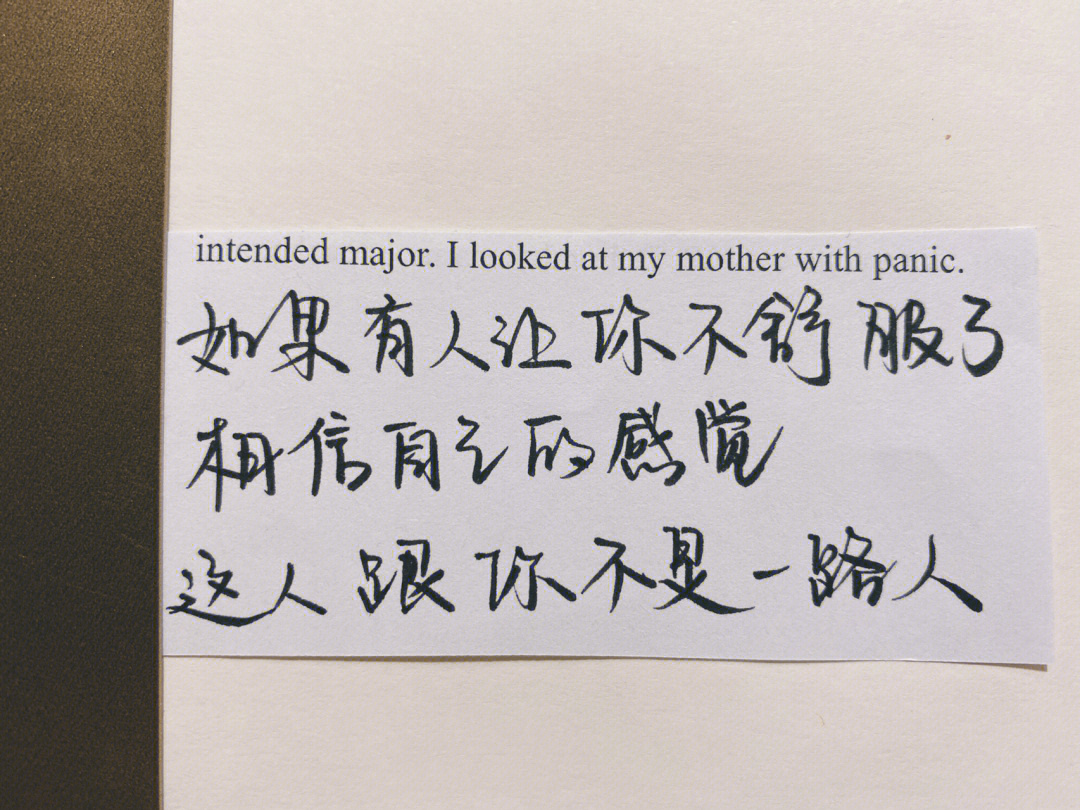 intended major. I looked at my mother with panic.
如果有人让你不舒服了
相信自己的感觉
这人跟你不是一路人